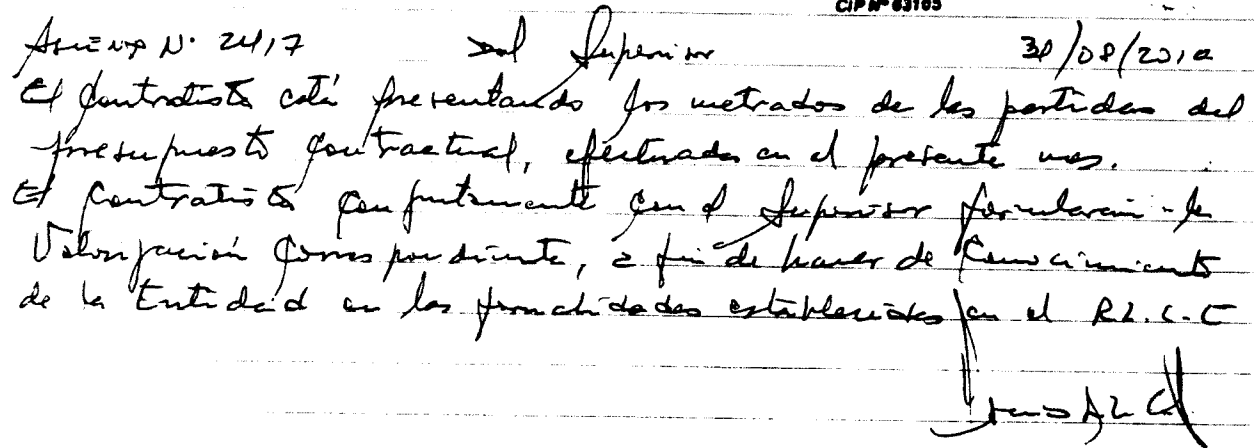 CIP Nº 63105
Asiento Nº 2417 Del Supervisor 30/08/2010
El Contratista está presentando los metrados de las partidas del
presupuesto contractual, efectuadas en el presente mes.
El Contratista conjuntamente con el Supervisor formularán la
Valorización correspondiente, a fin de hacer de Conocimiento
de la Entidad en las formalidades establecidas en el R.L.C.E